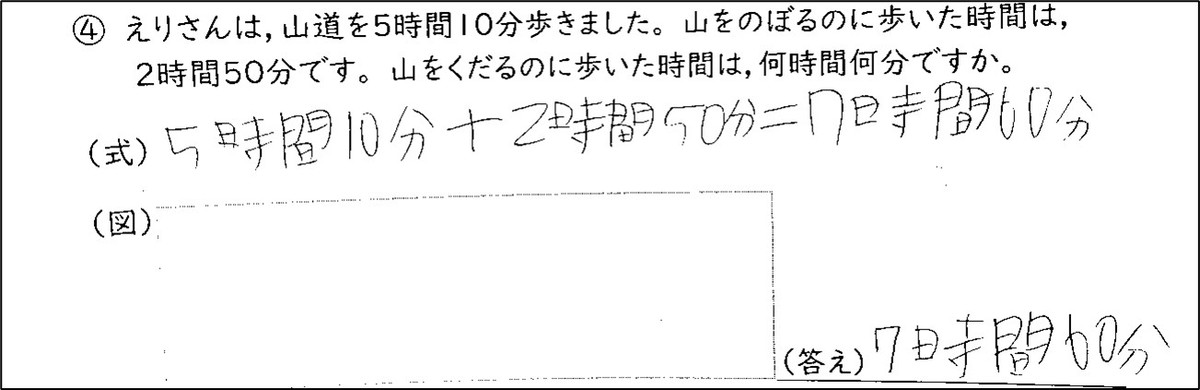 ④ えりさんは,山道を5時間10分歩きました。山をのぼるのに歩いた時間は,
2時間50分です。山をくだるのに歩いた時間は,何時間何分ですか。
(式) 5時間10分+2時間50分=7時間60分
(図)
(答え) 7時間60分